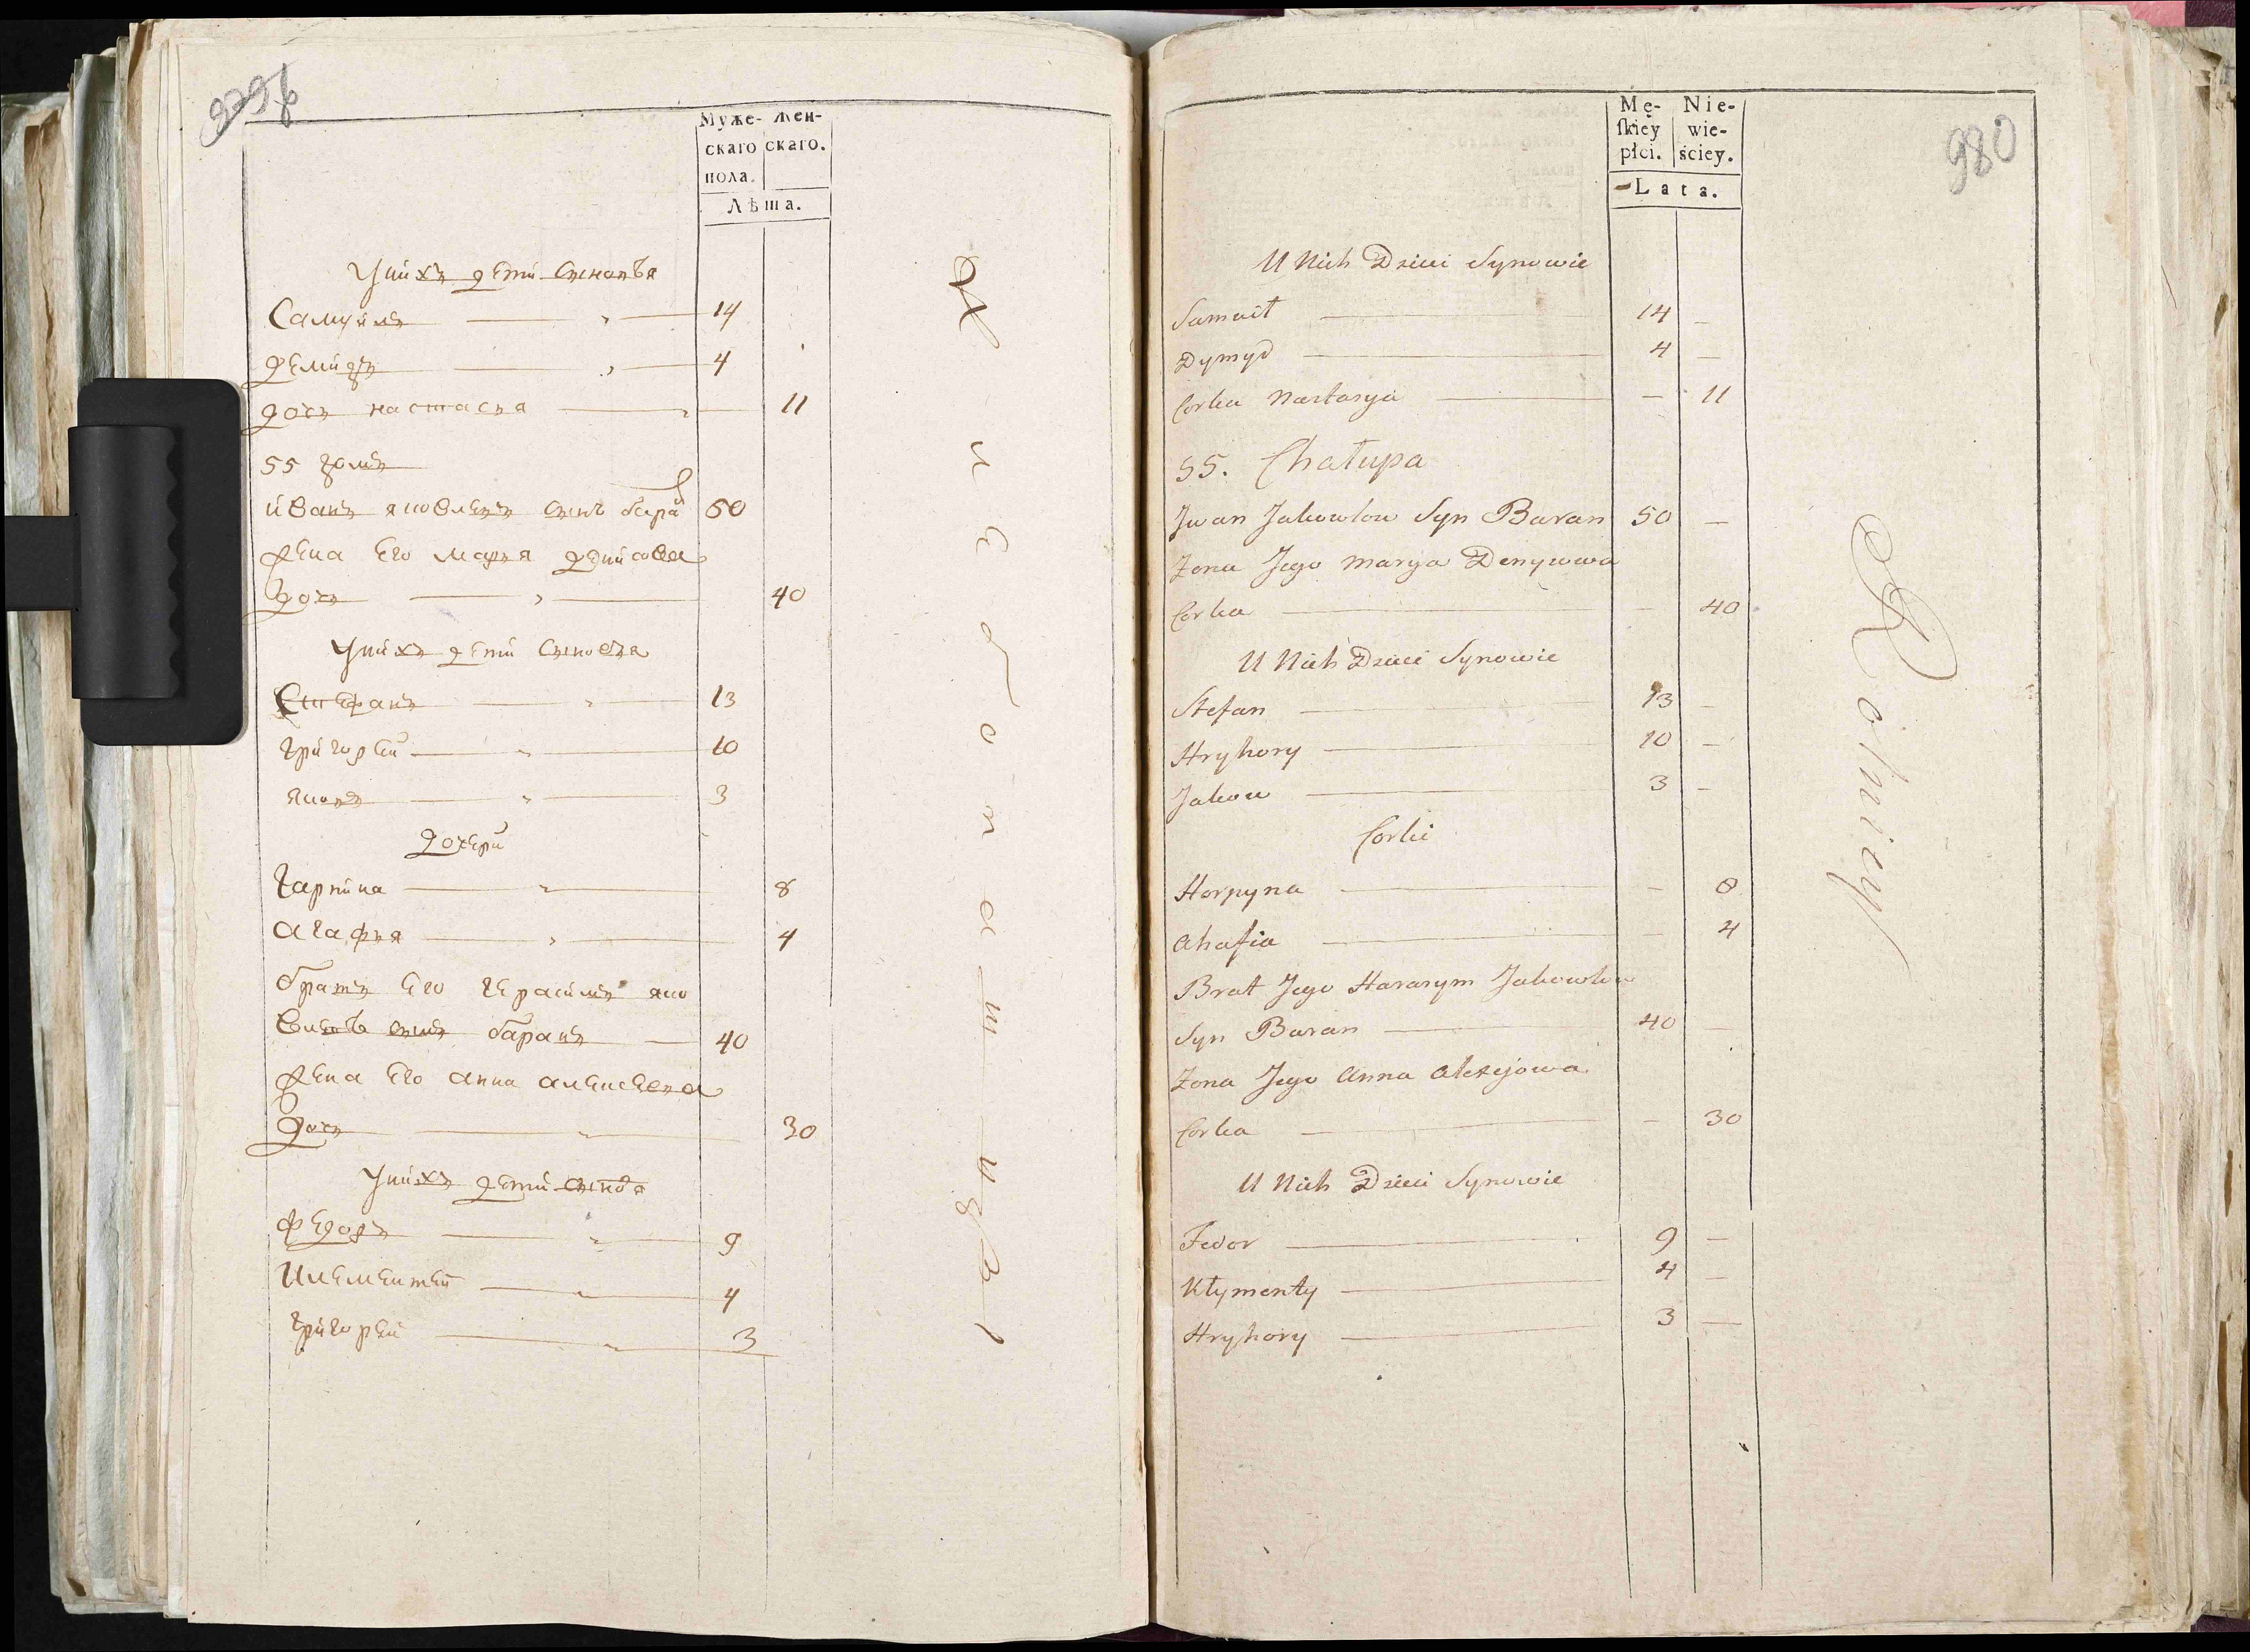 979б
Муже- Жен-
скаго скаго.
пола.
Лѣта.
У нихъ дети сыновья
Самуилъ 14
Демидъ 4
дочь настасья 11
55 домъ
иванъ яковлевъ сынъ баранъ 50
жена его марья денисова
дочь 40
У нихъ дети сыновья
Стефанъ 13
григорей 10
яковъ 3
дочери
гарпина 8
агафья 4
братъ его герасимъ яко
влевъ сынъ баранъ 40
жена его анна алексеева
дочь 30
У нихъ дети сыновья
федоръ 9
климентей 4
григорей 3
Хлебопашцы
980
Mę- Nie-
skiey wie-
płci. ściey.
Lata.
U Nich Dzieci Synowie
Samuił 14 –
Dymyd 4 –
Corka Nastasya – 11
55. Chałupa
Jwan Jakowlow Syn Baran 50 –
Zona Jego Marya Denysowa
Corka – 40
U Nich Dzieci Synowie
Stefan 13 –
Hryhory 10 –
Jakow 3 –
Corki
Horpyna – 8
Ahafia – 4
Brat Jego Harasym Jakowlow
Syn Baran 40
Zona Jego Anna Alexejowa
Corka – 30
U Nich Dzieci Synowie
Fedor 9 –
Kłymenty 4 –
Hryhory 3 –
Rolnicy